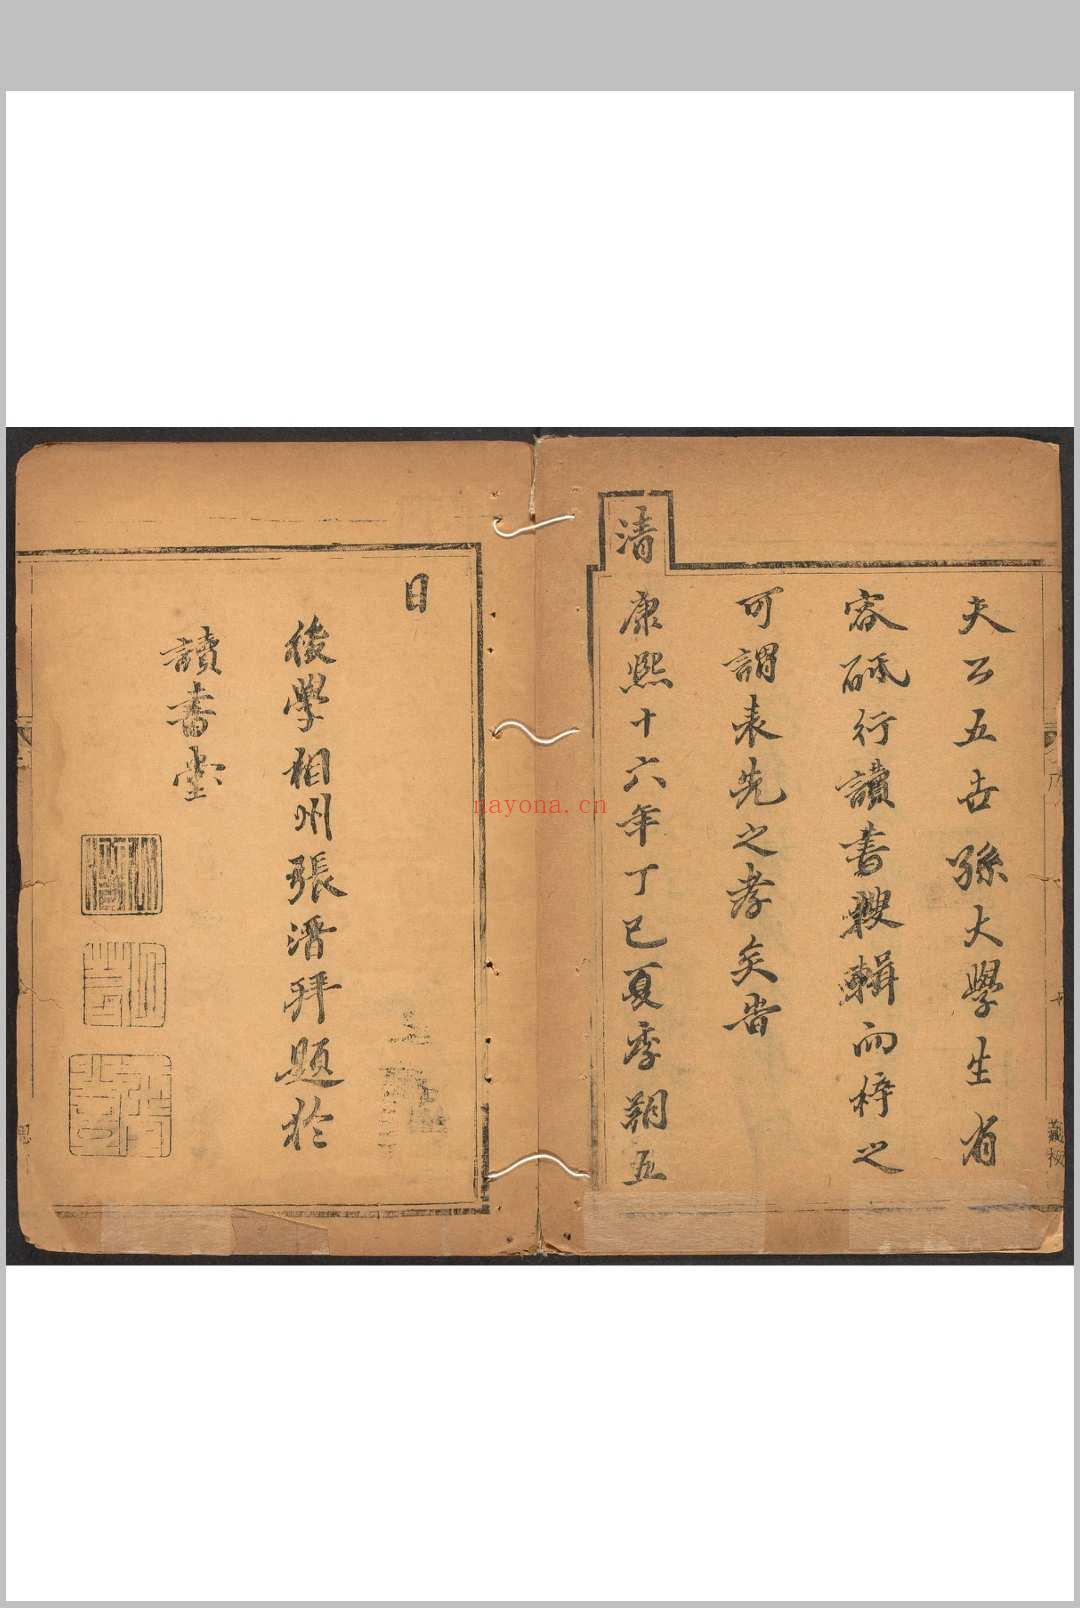 夫公五世孫大學生省
容砥行讀書搜輯而梓之
可謂表先之孝矣旹
清
康熙十六年丁巳夏季朔五
藏板
日
後學相州張潛拜題於
讀書堂
nayona.cn